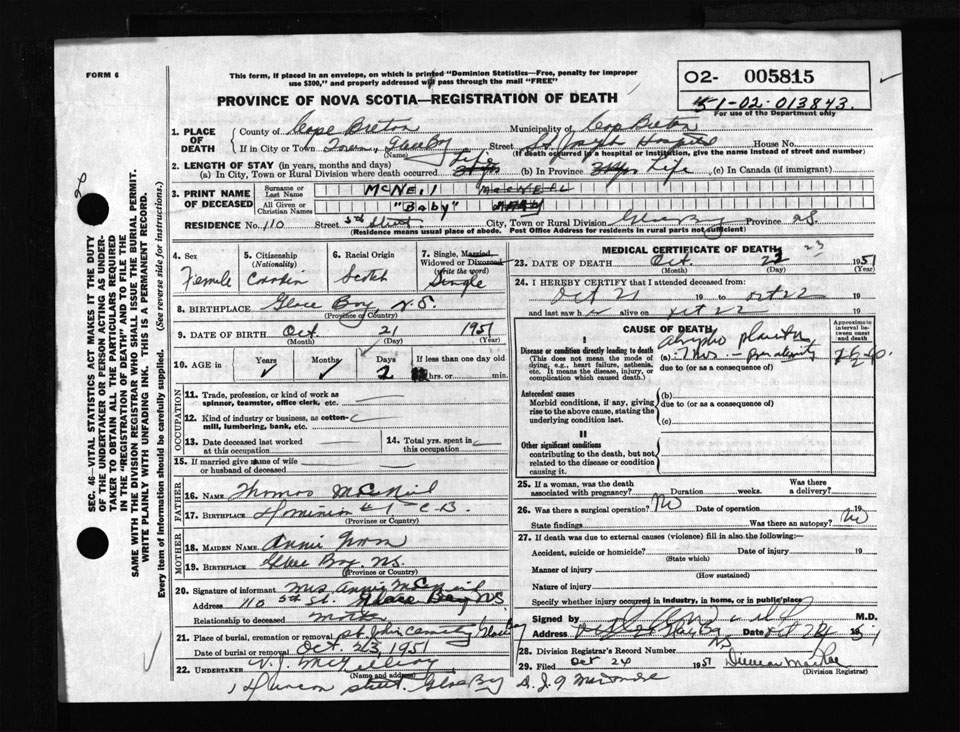 FORM 6
This form, if placed in an envelope, on which is printed "Dominion Statistics—Free, penalty for improper
use $300," and properly addressed will pass through the mail "FREE"
02- 005815
51-02-013843.
For use of the Department only
PROVINCE OF NOVA SCOTIA—REGISTRATION OF DEATH
1. PLACE OF DEATH
County of Cape Breton Municipality of Cap Breton
If in City or Town Town, Glace Bay Street St. Joseph House No.
(Name) (If death occurred in a hospital or institution, give the name instead of street and number)
2. LENGTH OF STAY (in years, months and days)
(a) In City, Town or Rural Division where death occurred Life (b) In Province Life (c) In Canada (if immigrant)
3. PRINT NAME OF DECEASED
Surname or Last Name McNeil
All Given or Christian Names "Baby"
RESIDENCE No. 110 Street 5th Street City, Town or Rural Division Glace Bay Province N.S.
(Residence means usual place of abode. Post Office Address for residents in rural parts not sufficient)
4. Sex Female
5. Citizenship (Nationality)
6. Racial Origin Scotch
7. Single, Married, Widowed or Divorced (write the word) Single
8. BIRTHPLACE Glace Bay N.S.
(Province or Country)
9. DATE OF BIRTH Oct. 21 1951
(Month) (Day) (Year)
10. AGE in Years Months Days If less than one day old
2 hrs. or min.
OCCUPATION
11. Trade, profession, or kind of work as
spinner, teamster, office clerk, etc.
12. Kind of industry or business, as cotton-
mill, lumbering, bank, etc.
13. Date deceased last worked
at this occupation
14. Total yrs. spent in
this occupation
15. If married give name of wife
or husband of deceased
FATHER
16. NAME Thomas McNeil
17. BIRTHPLACE Dominion #1 C.B.
(Province or Country)
MOTHER
18. MAIDEN NAME Annie
19. BIRTHPLACE Glace Bay. N.S.
(Province or Country)
20. Signature of informant Mrs Annie McNeil
Address 110 5th St. Glace Bay N.S.
Relationship to deceased Mother
21. Place of burial, cremation or removal St. John Cemetery Glace Bay
Date of burial or removal Oct. 23, 1951
22. UNDERTAKER V. J. McGillivray
(Name and address)
Street. Glace Bay
MEDICAL CERTIFICATE OF DEATH
23
23. DATE OF DEATH Oct. 23 1951
(Month) (Day) (Year)
24. I HEREBY CERTIFY that I attended deceased from:
Oct 21 19 to Oct 22 19
and last saw h alive on Oct 22 19
CAUSE OF DEATH
Approximate interval between onset and death
I
Disease or condition directly leading to death
(This does not mean the mode of
dying, e.g., heart failure, asthenia,
etc. It means the disease, injury, or
complication which caused death.)
(a) 7 mos. — Prematurity
due to (or as a consequence of)
Antecedent causes
Morbid conditions, if any, giving
rise to the above cause, stating the
underlying condition last.
(b)
due to (or as a consequence of)
(c)
II
Other significant conditions
contributing to the death, but not
related to the disease or condition
causing it.
25. If a woman, was the death
associated with pregnancy? Duration weeks. Was there a delivery?
26. Was there a surgical operation? No Date of operation 19
State findings Was there an autopsy? No
27. If death was due to external causes (violence) fill in also the following:—
Accident, suicide or homicide? Date of injury 19
(State which)
Manner of injury
(How sustained)
Nature of injury
Specify whether injury occurred in industry, in home, or in public place
Signed by M.D.
Address Glace Bay NS Date Oct 24 1951
28. Division Registrar's Record Number
29. Filed Oct 24 1951 Duncan MacRae
(Division Registrar)
SEC. 46—VITAL STATISTICS ACT MAKES IT THE DUTY
OF THE UNDERTAKER OR PERSON ACTING AS UNDER-
TAKER TO OBTAIN ALL THE PARTICULARS REQUIRED
IN THE "REGISTRATION OF DEATH" AND TO FILE THE
SAME WITH THE DIVISION REGISTRAR WHO SHALL ISSUE THE BURIAL PERMIT.
WRITE PLAINLY WITH UNFADING INK. THIS IS A PERMANENT RECORD.
Every item of information should be carefully supplied. (See reverse side for instructions.)